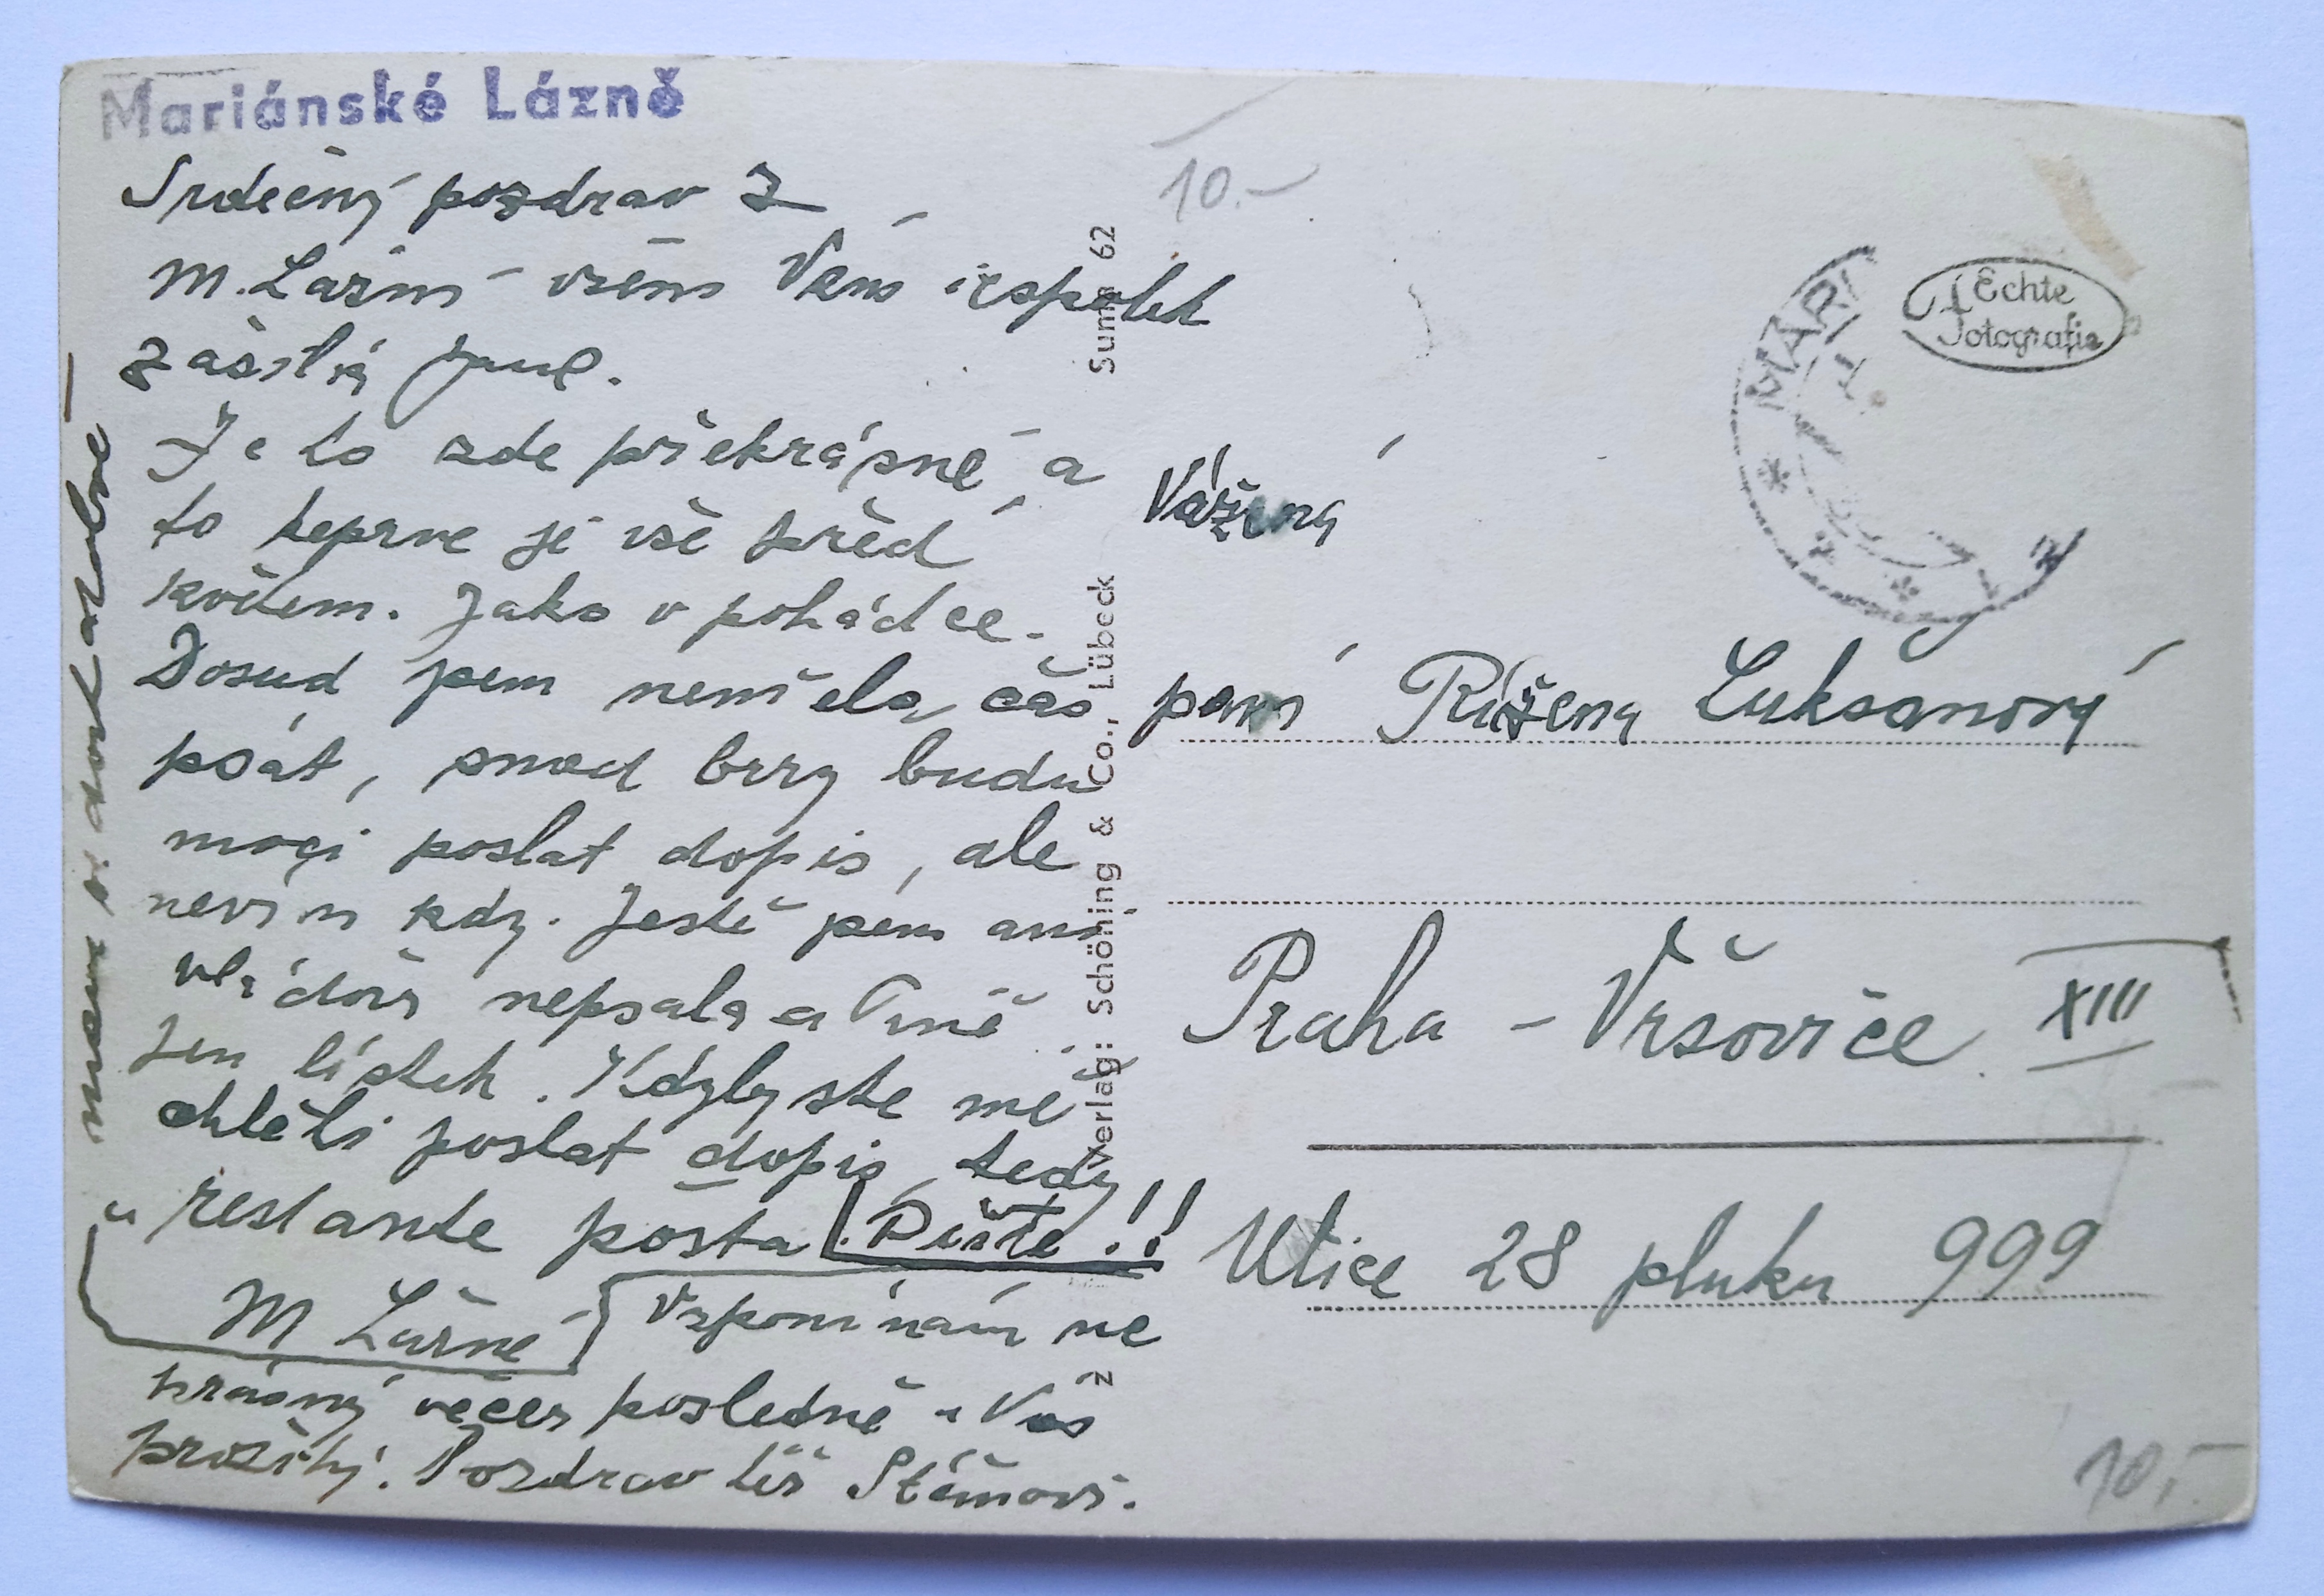 Mariánské Lázně
Srdečný pozdrav z
M. Lázní všem Vám
zasílá
Je to zde překrásné, a
to teprve je vše před
květem. Jako v pohádce.
Dosud jsem neměla čas
psát, snad brzy budu
moci poslat dopis, ale
nevím kdy. Ještě jsem ani
nepsala a
jen lístek. Kdybyste mě
chtěli poslat dopis, tedy
"restante pošta Pište!!
M Lázně Vzpomínám ne
krásný večer posledně u Vás
prožitý. Pozdrav též
10.-
Sum 62
Verlag: Schöning & Co., Lübeck
Echte
Fotografie
MARI
Vážená
paní Růžena Luksanová
Praha - Vršovice XIII
Ulice 28 pluku 999
10,-